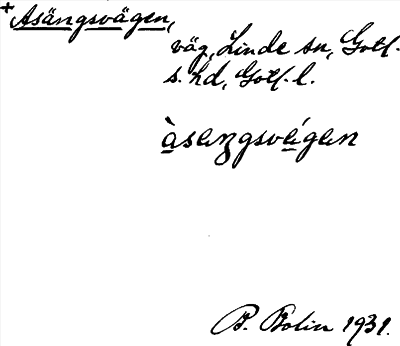 +Asängsvägen,
väg, Linde sn, Gotl.
s. hd, Gotl. l.
àsaŋgsvégan
B. Bolin 1931.